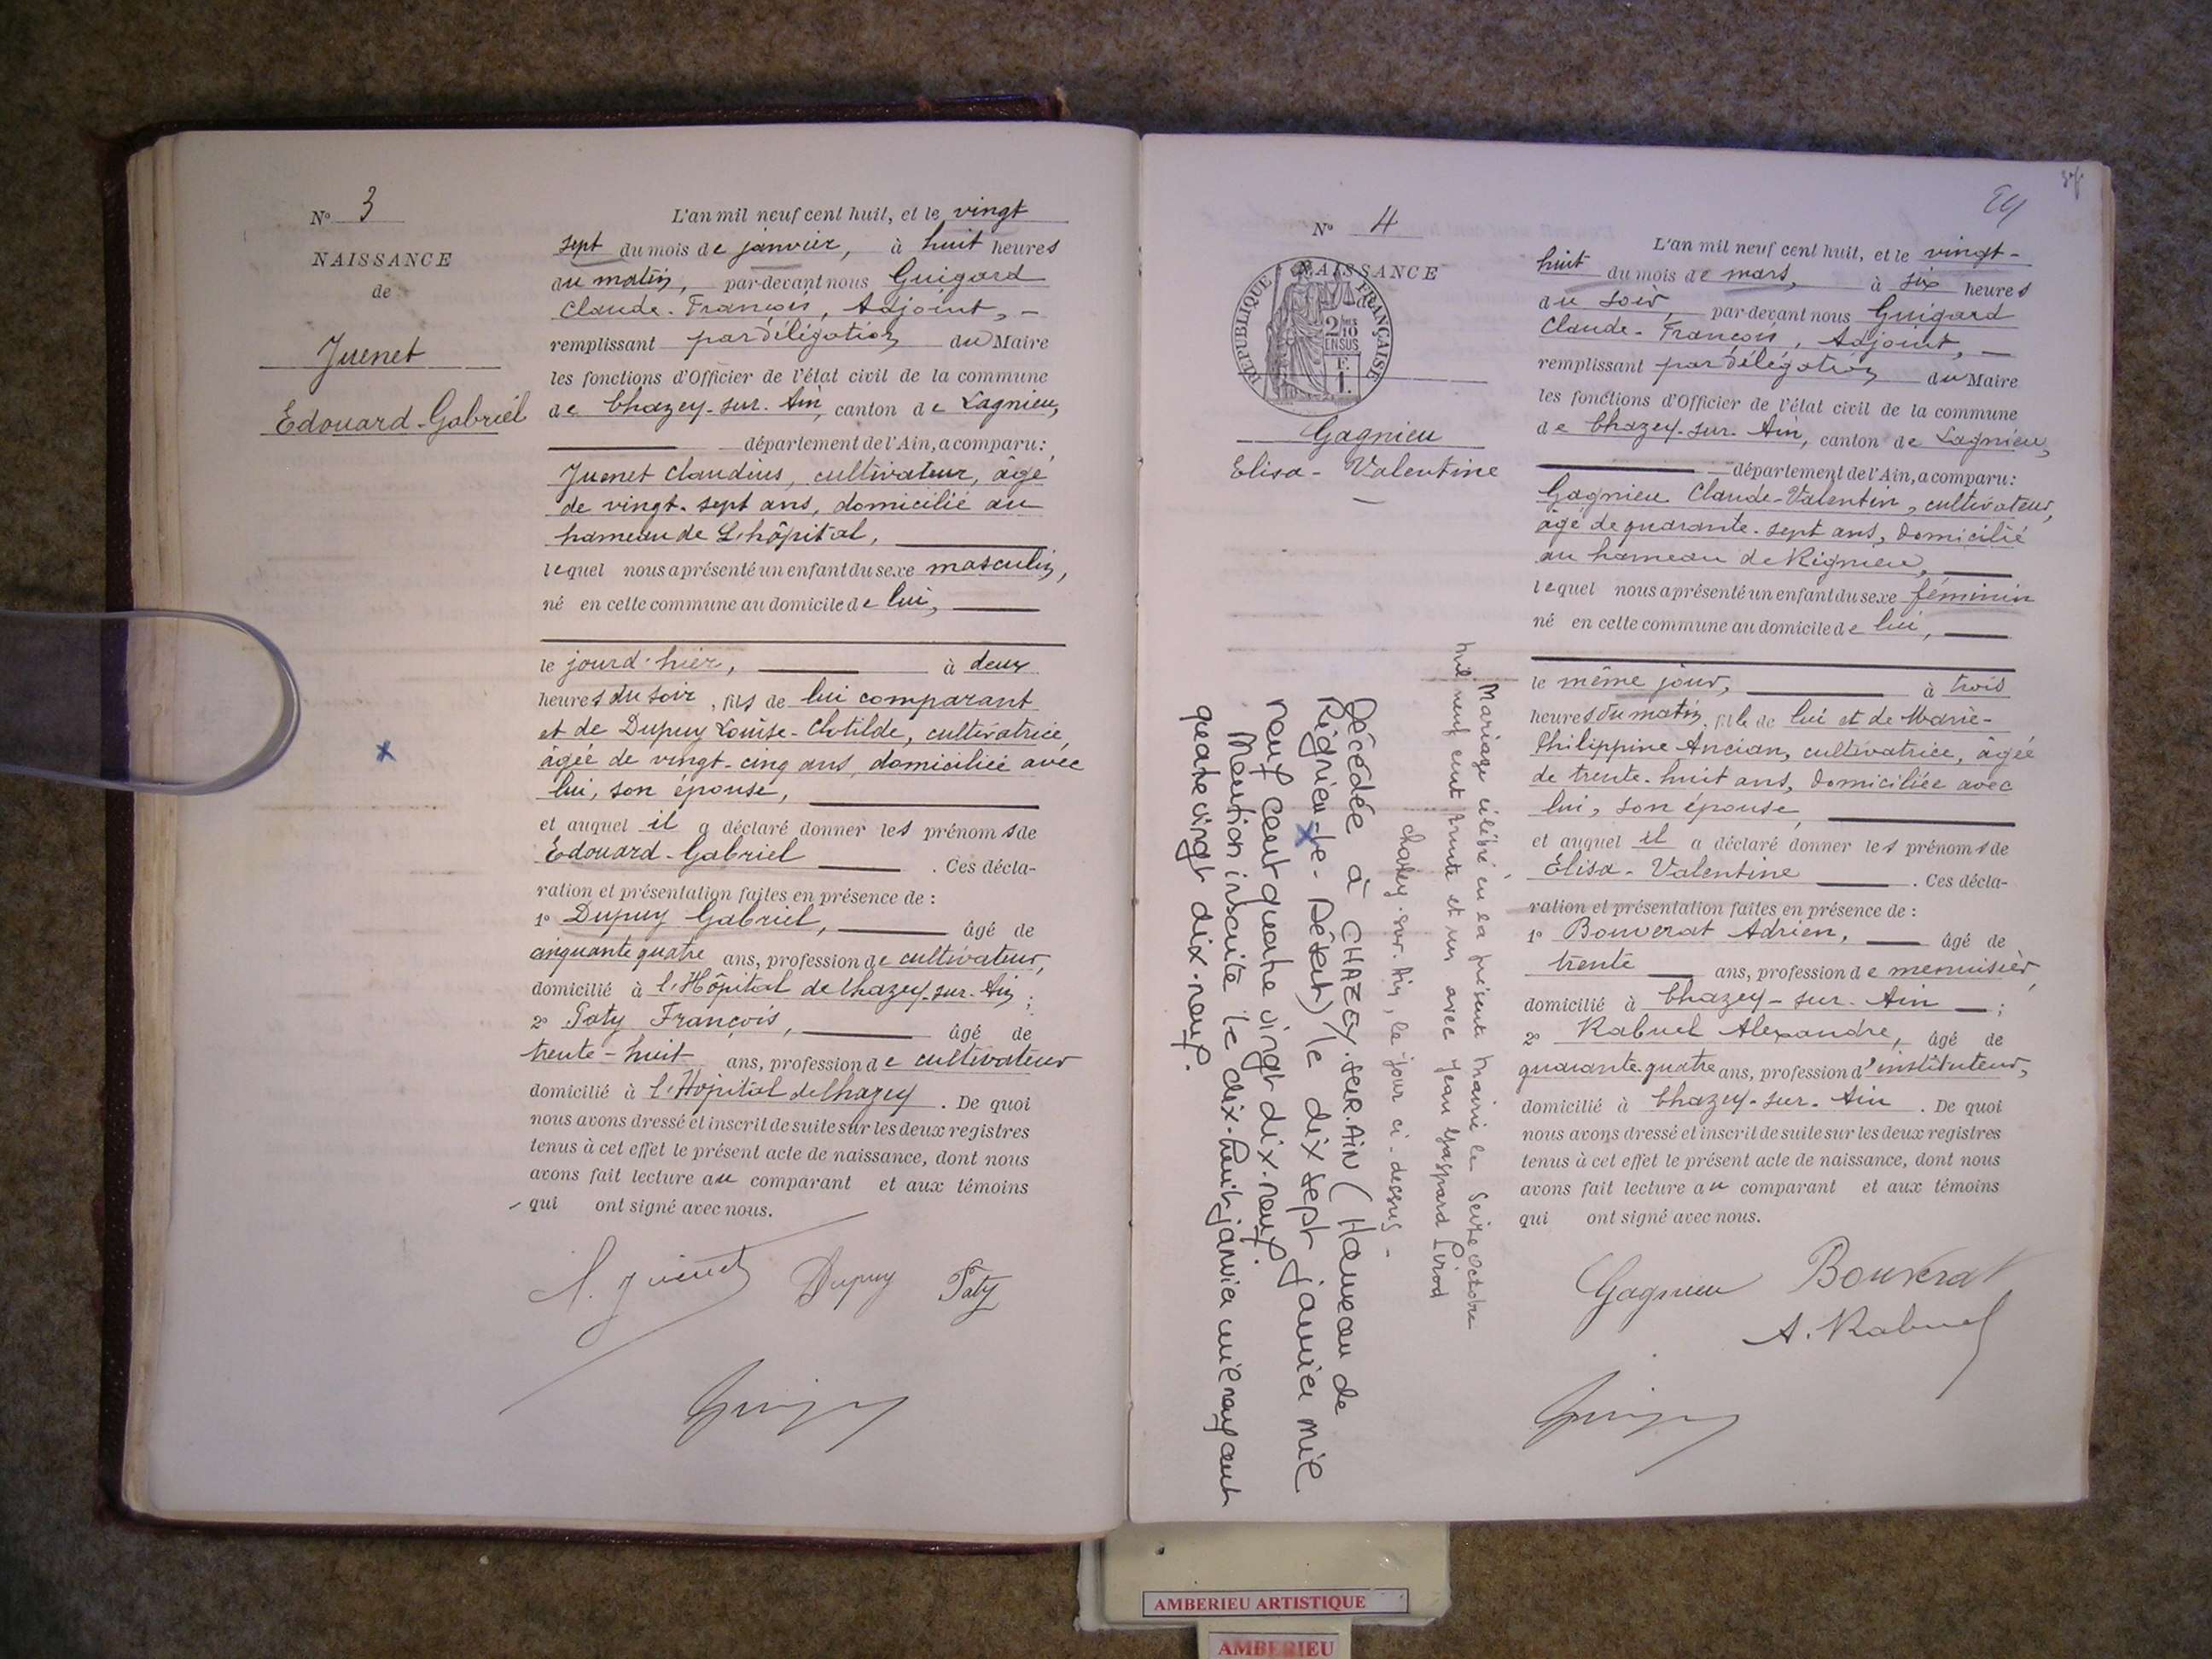 N° 3
NAISSANCE
de
Juenet
Edouard-Gabriel
L'an mil neuf cent huit, et le vingt
sept du mois de janvier, à huit heures
du matin, par-devant nous Guigard
Claude-François, Adjoint, -
remplissant par délégation du Maire
les fonctions d'Officier de l'état civil de la commune
de Chazey-sur-Ain, canton de Lagnieu,
département de l'Ain, a comparu:
Juenet Claudius, cultivateur, âgé
de vingt-sept ans, domicilié au
hameau de L'hôpital,
lequel nous a présenté un enfant du sexe masculin,
né en cette commune au domicile de lui,
le jourd'hier, à deux
heures du soir, fils de lui comparant
et de Dupuy Louise-Clotilde, cultivatrice,
âgée de vingt-cinq ans, domiciliée avec
lui, son épouse,
et auquel il a déclaré donner les prénoms de
Edouard-Gabriel . Ces décla-
ration et présentation faites en présence de :
1° Dupuy Gabriel, âgé de
cinquante quatre ans, profession de cultivateur,
domicilié à l'Hôpital de Chazey-sur-Ain ;
2° Paty François, âgé de
trente-huit ans, profession de cultivateur
domicilié à l'Hôpital de Chazey . De quoi
nous avons dressé et inscrit de suite sur les deux registres
tenus à cet effet le présent acte de naissance, dont nous
avons fait lecture au comparant et aux témoins
qui ont signé avec nous.
Juenet Dupuy Paty
N° 4
NAISSANCE
de
RÉPUBLIQUE FRANÇAISE
2/10
EN SUS
F.
1.
Gagnieu
Elisa-Valentine
Mariage célébré en la présente mairie le seize octobre
mil neuf cent trente et un avec Jean Gaspard Pirod
Chazey-sur-Ain, le jour ci-dessus -
Décédée à CHAZEY.SUR.AIN (Hameau de
Rignieu-le-Désert) le dix sept janvier mil
neuf cent quatre vingt dix-neuf
Mention inscrite le dix-huit janvier mil neuf cent
quatre vingt dix-neuf.
L'an mil neuf cent huit, et le vingt-
huit du mois de mars, à six heures
du soir, par-devant nous Guigard
Claude-François, Adjoint, -
remplissant par délégation du Maire
les fonctions d'Officier de l'état civil de la commune
de Chazey-sur-Ain, canton de Lagnieu,
département de l'Ain, a comparu:
Gagnieu Claude-Valentin, cultivateur,
âgé de quarante-sept ans, domicilié
au hameau de Rignieu,
lequel nous a présenté un enfant du sexe féminin
né en cette commune au domicile de lui,
le même jour, à trois
heures du matin, fille de lui et de Marie-
Philippine Ancian, cultivatrice, âgée
de trente-huit ans, domiciliée avec
lui, son épouse,
et auquel il a déclaré donner les prénoms de
Elisa-Valentine . Ces décla-
ration et présentation faites en présence de :
1° Bouverat Adrien, âgé de
trente ans, profession de menuisier
domicilié à Chazey-sur-Ain ;
2° Rabuel Alexandre, âgé de
quarante-quatre ans, profession d'instituteur,
domicilié à Chazey-sur-Ain . De quoi
nous avons dressé et inscrit de suite sur les deux registres
tenus à cet effet le présent acte de naissance, dont nous
avons fait lecture au comparant et aux témoins
qui ont signé avec nous.
Gagnieu Bouverat
A. Rabuel
AMBERIEU ARTISTIQUE
AMBERIEU